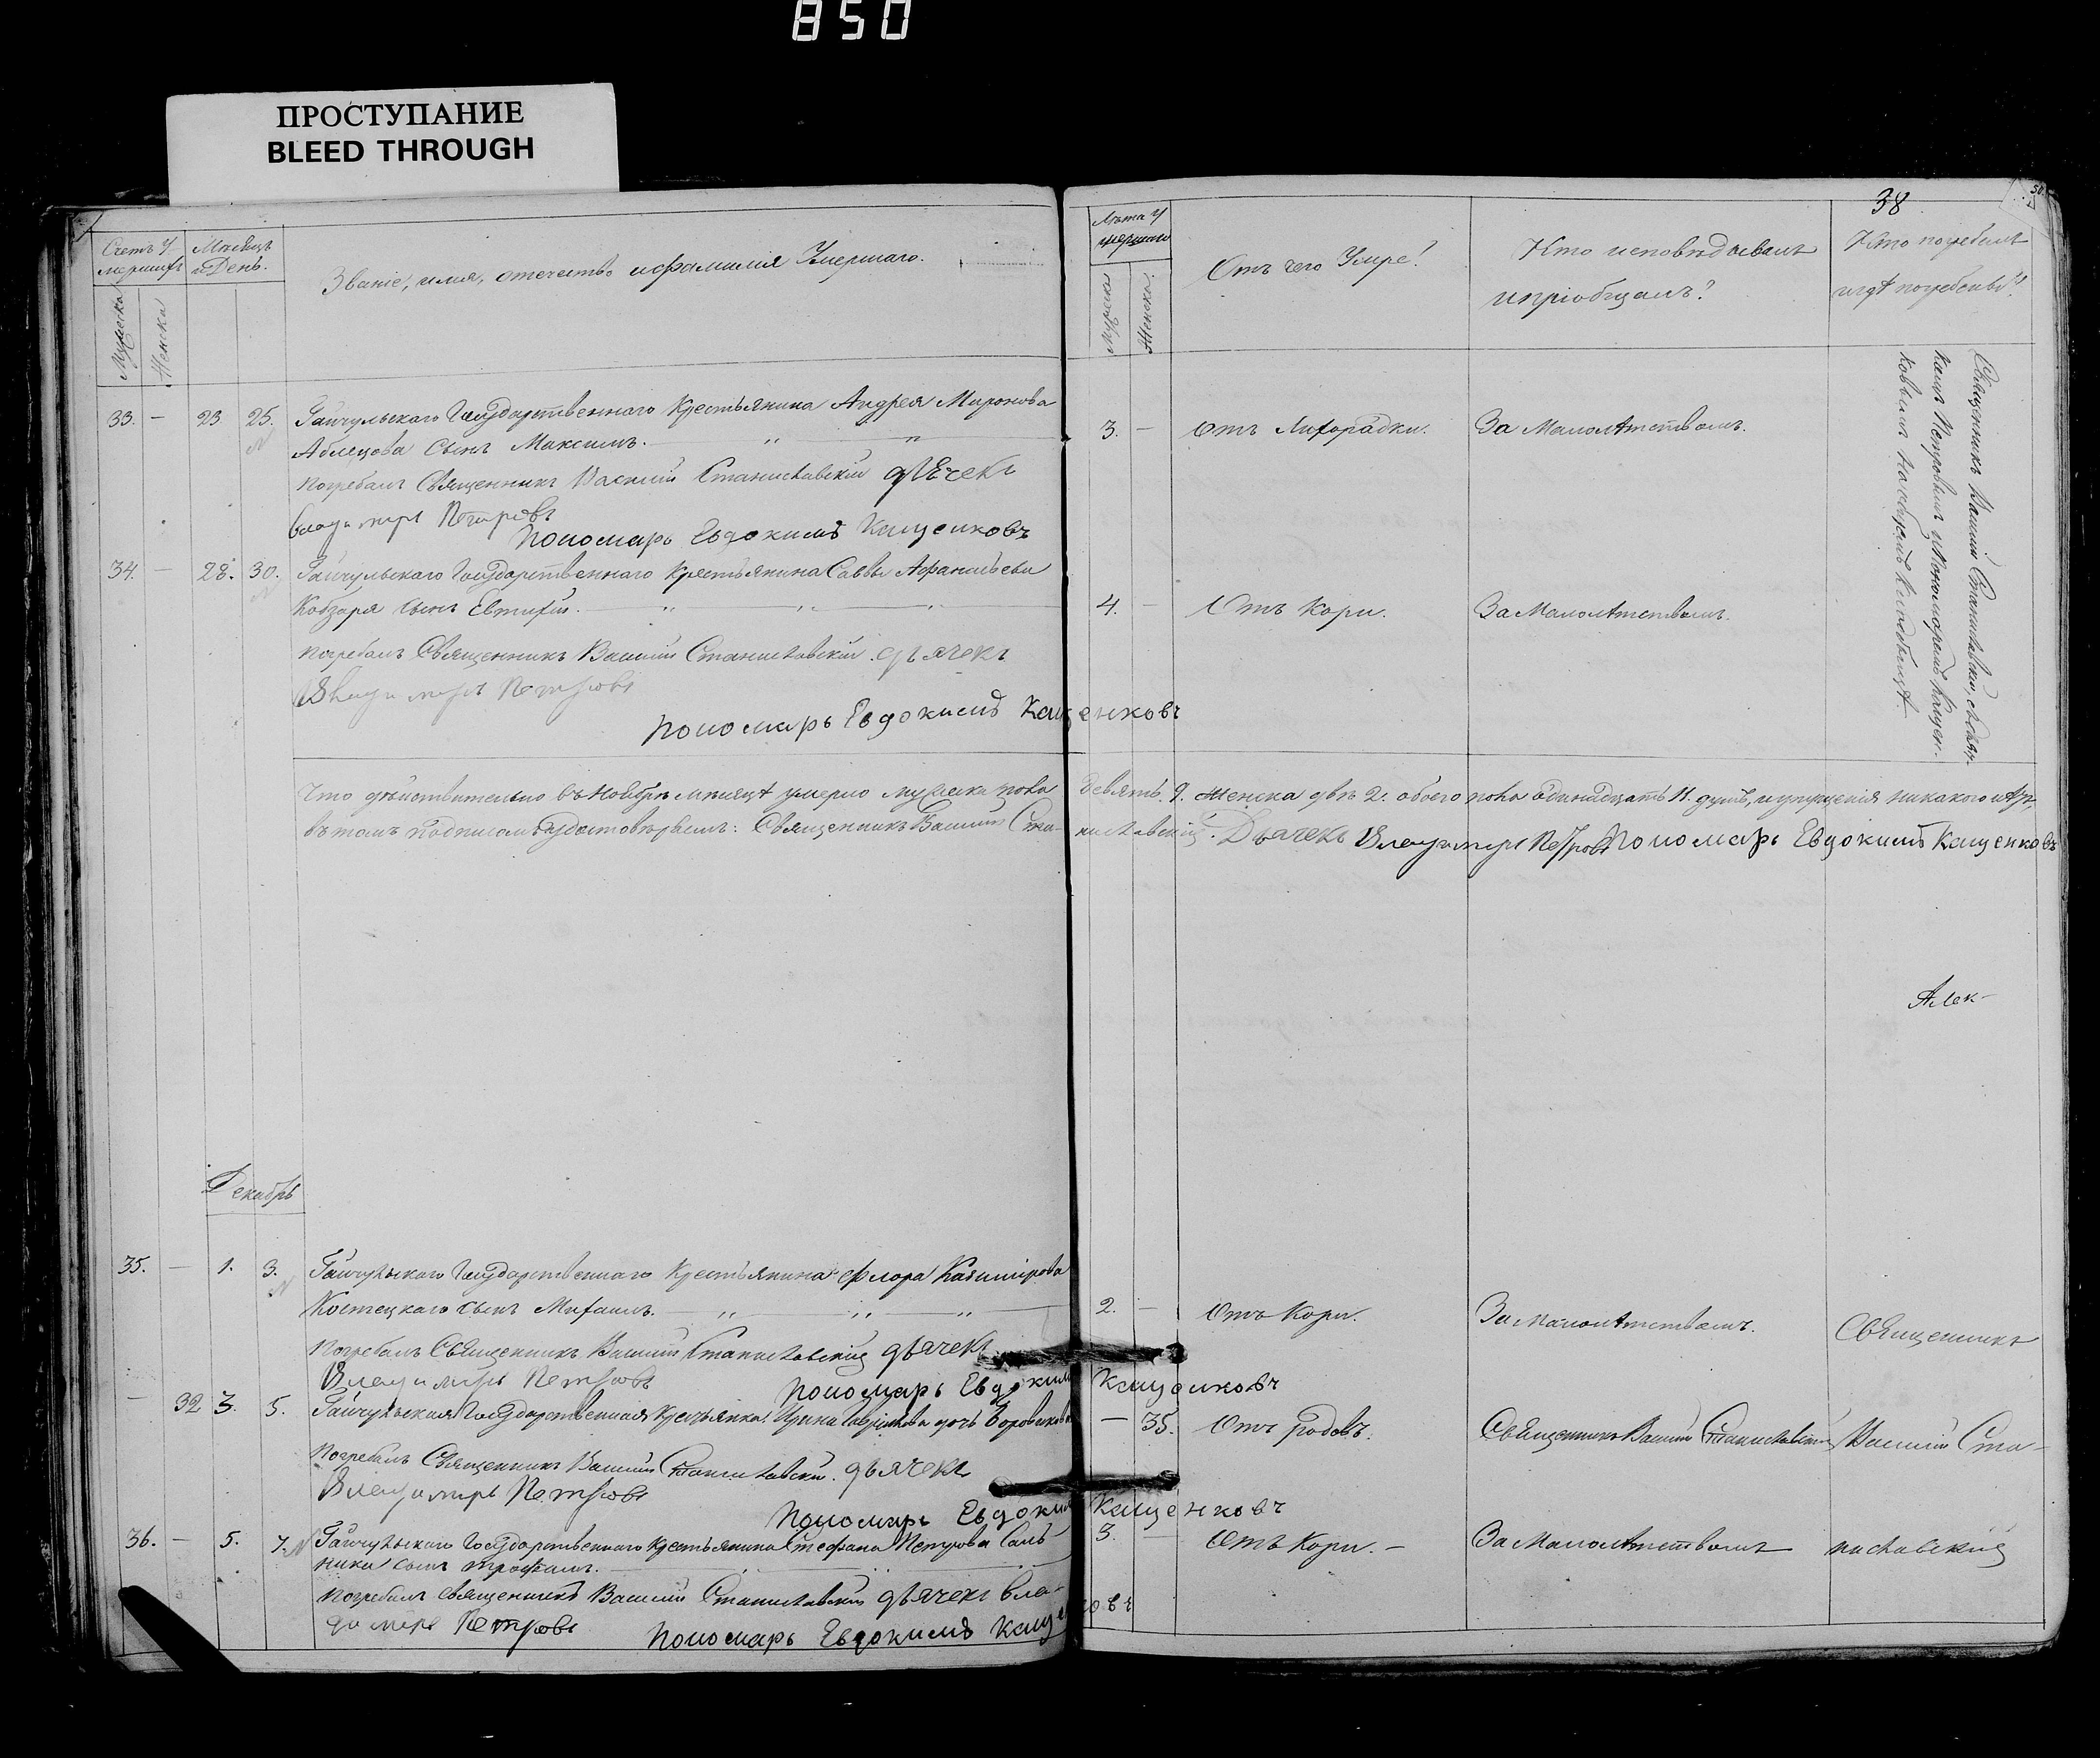 850
ПРОСТУПАНИЕ
BLEED THROUGH
38
Счетъ У-
мершихъ
Мужеска
Женска
Мѣсяцъ
и День.
Званіе, имя, отечество и фамилия Умершаго.
Лѣта У
мершаго
Мужеска
Женска
Отъ чего Умре?
Кто исповѣдывалъ
и пріобщалъ?
Кто погребалъ
и гдѣ погребены?
33. — 23 25. Гайчульскаго Государственнаго Крестьянина Андрея Миронова
сынъ Максимъ. 3. — Отъ Лихорадки. За Малолѣтствомъ.
погребалъ Священникъ Василій Станиславскій дьячекъ
Владимиръ Петровъ
Пономарь Евдокимъ Кащенковъ
34. — 28. 30. Гайчульскаго Государственнаго Крестьянина Саввы Афанасьева
Кобзаря сынъ Евтихій. 4. — Отъ Кори. За Малолѣтствомъ.
погребалъ Священникъ Василій Станиславскій дьячекъ
Владимиръ Петровъ
Пономарь Евдокимъ Кащенковъ
Священникъ Василій Станиславскій, съ дья-
комъ Петровымъ и Пономаремъ Кащен-
ковымъ на общемъ кладбищѣ
Что дѣйствительно въ Ноябрѣ мѣсяцѣ умерло мужеска пола девять 9. женска двѣ 2. обоего пола одинадцать 11. душъ, и упущенія никакого нѣтъ,
въ томъ подписомъ удостовѣряемъ: Священникъ Василій Станиславскій. Дьячекъ Владимиръ Петровъ Пономарь Евдокимъ Кащенковъ
Алек-
Декабрь
35. — 1. 3. Гайчульскаго Государственнаго Крестьянина Флора Казимірова
Костецкаго сынъ Михаилъ. 2. — Отъ Кори. За Малолѣтствомъ. Священникъ
погребалъ Священникъ Василій Станиславскій дьячекъ
Владимиръ Петровъ
Пономарь Евдокимъ Кащенковъ
— 32 3. 5. Гайчульская Государственная Крестьянка Ирина дочь — 35. Отъ родовъ. Священникъ Василій Станиславскій Василій Ста-
погребалъ Священникъ Василій Станиславскій. дьячекъ
Владимиръ Петровъ
Пономарь Евдокимъ Кащенковъ
36. — 5. 7. Гайчульскаго Государственнаго Крестьянина Стефана Петрова Саль-
ника сынъ Трофимъ. 3. — Отъ Кори. — За Малолѣтствомъ ниславскій
погребалъ священникъ Василій Станиславскій дьячекъ Вла-
димиръ Петровъ Пономарь Евдокимъ Кащенковъ